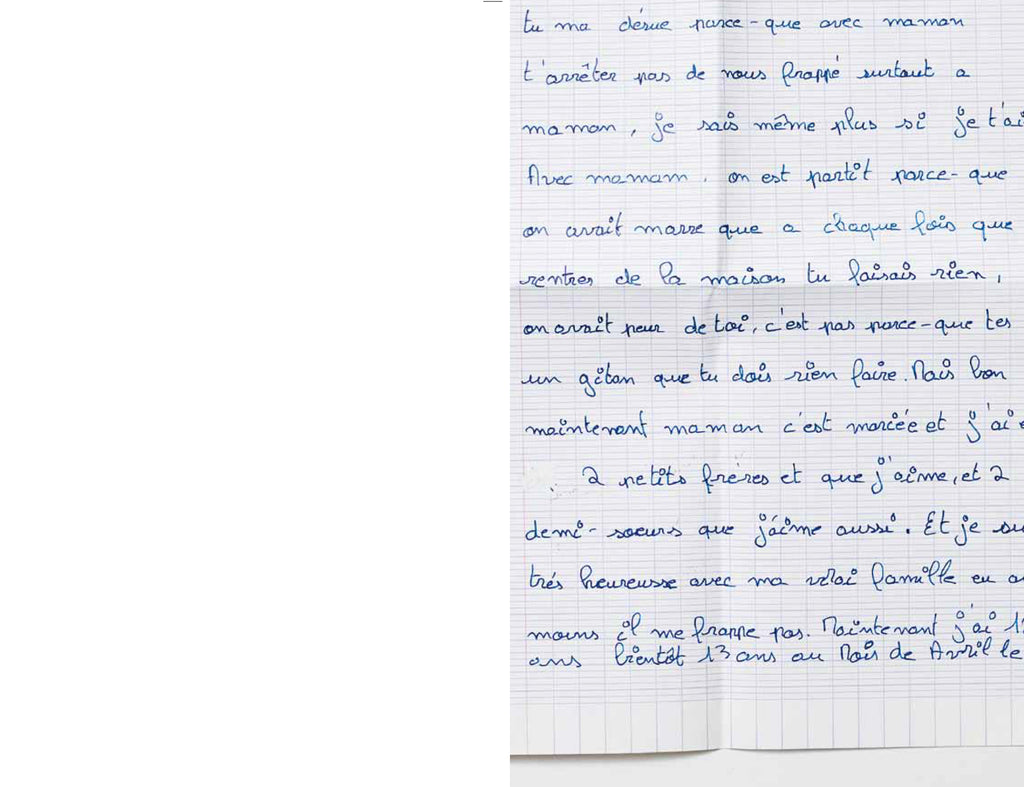 tu ma désue parce-que avec maman
t'arrêter pas de nous frappé surtout a
maman, je sais même plus si je t'ai
Avec mamam. on est partît parce-que
on avait marre que a chaque fois que
rentres de la maison tu faisais rien,
on avait peur de toi, c'est pas parce-que tes
un gitan que tu dois rien faire. Mais bon
maintenant maman c'est mariée et j'ai
2 petits frères et que j'aime, et 2
demi-soeurs que j'aime aussi. Et je
trés heureusse avec ma vrai famille eu
moins il me frappe pas. Maintenant j'ai
ans bientôt 13 ans au Mois de Avril le